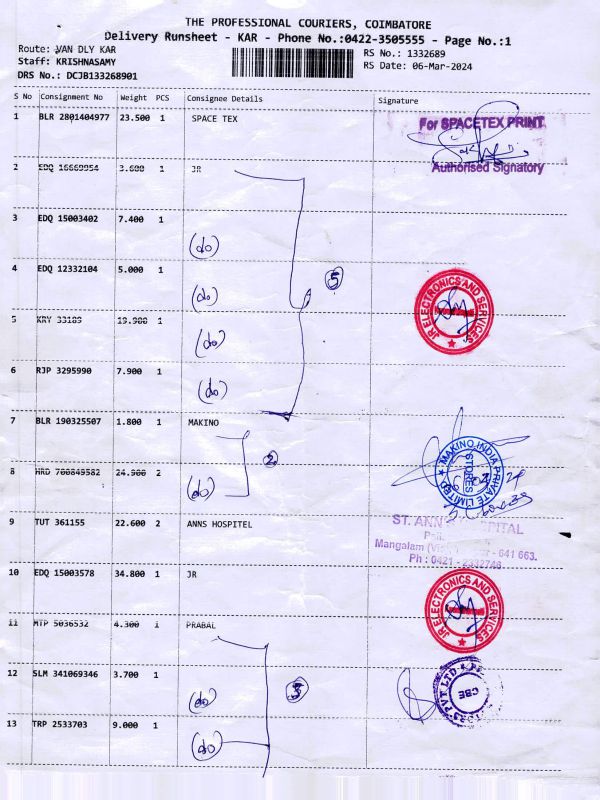 THE PROFESSIONAL COURIERS, COIMBATORE
Delivery Runsheet - KAR - Phone No.:0422-3505555 - Page No.:1
Route: VAN DLY KAR
RS No.: 1332689
Staff: KRISHNASAMY
RS Date: 06-Mar-2024
DRS No.: DCJB133268901
S No Consignment No Weight PCS Consignee Details Signature
1 BLR 2801404977 23.500 1 SPACE TEX
For SPACETEX PRINT
Authorised Signatory
2 EDQ 16669954 3.600 1 JR
3 EDQ 15003402 7.400 1
(do)
4 EDQ 12332104 5.000 1
(do)
5
JR ELECTRONICS AND SERVICES
5 KRY 33189 19.900 1
(do)
6 RJP 3295990 7.900 1
(do)
7 BLR 190325507 1.800 1 MAKINO
2
MAKINO INDIA PRIVATE LIMITED
STORES
8 HRD 700849582 24.900 2
(do)
9 TUT 361155 22.600 2 ANNS HOSPITEL
ST. ANN'S HOSPITAL
Mangalam - 641 663.
Ph : 0421 -
10 EDQ 15003578 34.800 1 JR
JR ELECTRONICS AND SERVICES
11 MTP 5036532 4.300 1 PRABAL
12 SLM 341069346 3.700 1
(do)
3
PVT LTD
CBE
13 TRP 2533703 9.000 1
(do)